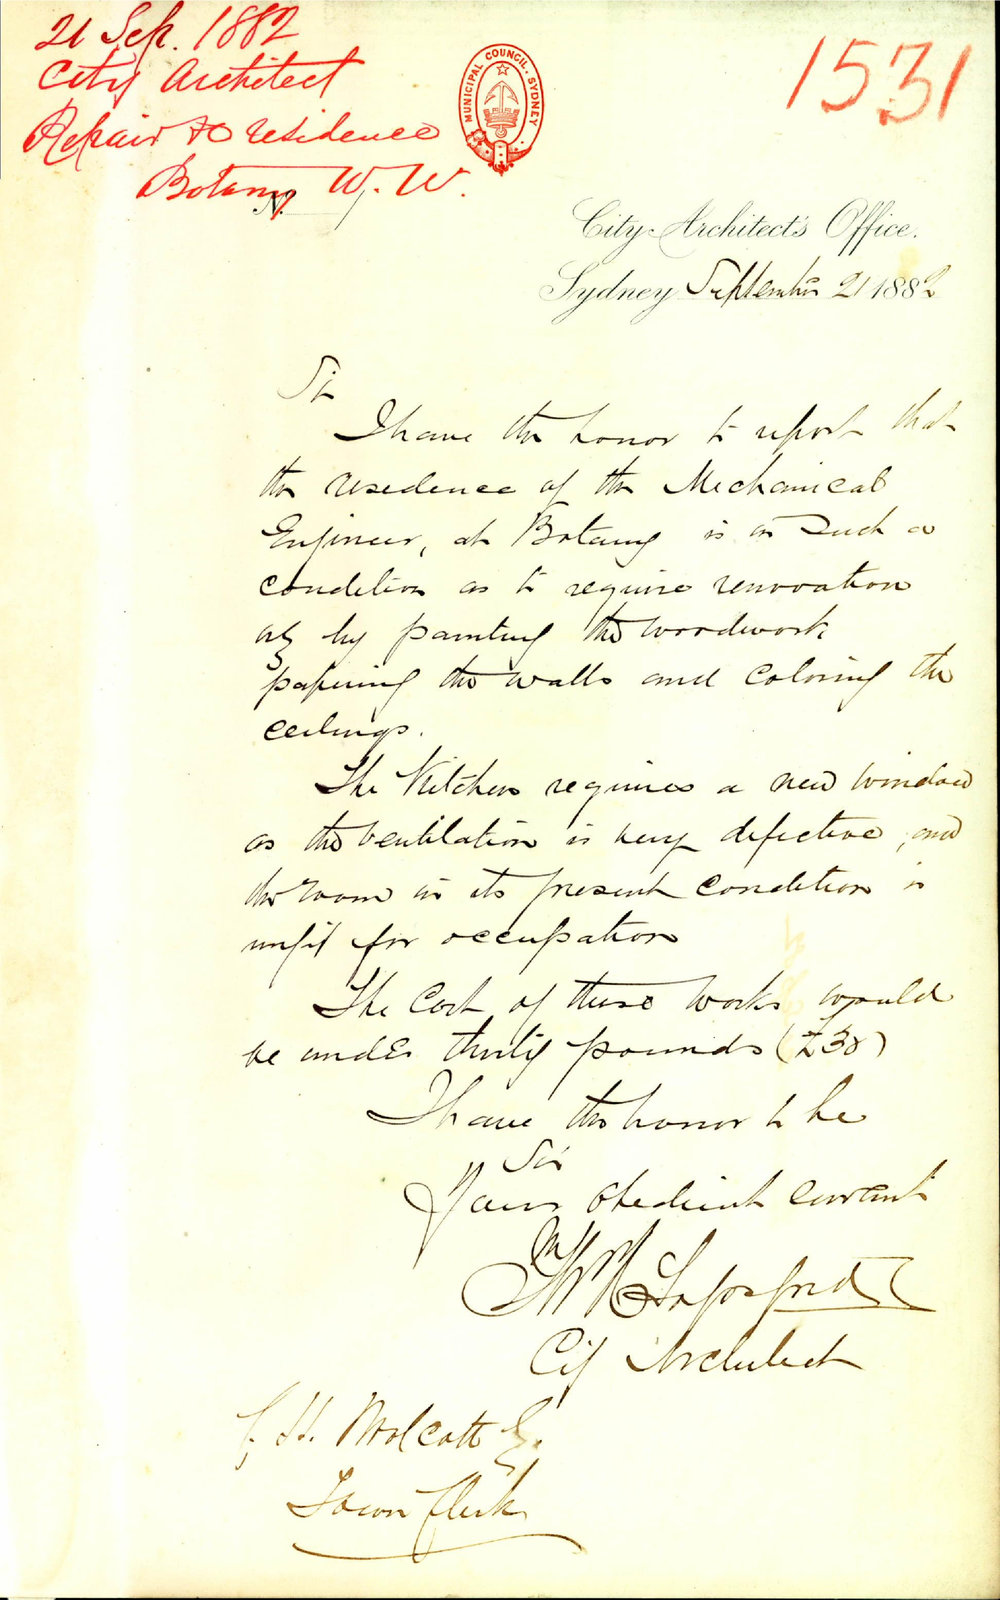 21 Sep. 1882
City Architect
Repair to residence
Botany W. W.
1531
MUNICIPAL COUNCIL. SYDNEY
No.
City Architect's Office.
Sydney September 21 1882
Sir
I have the honor to report that
the residence of the Mechanical
Engineer, at Botany is in such a
condition as to require renovation
by painting the woodwork
papering the walls and coloring the
ceilings.
The Kitchen requires a new window
as the ventilation is very defective, and
the room in its present condition is
unfit for occupation
The cost of these works would
be under thirty pounds (£30)
I have the honor to be
Sir
Your obedient servant
City Architect
C. H. Woolcott Esq.
Town Clerk